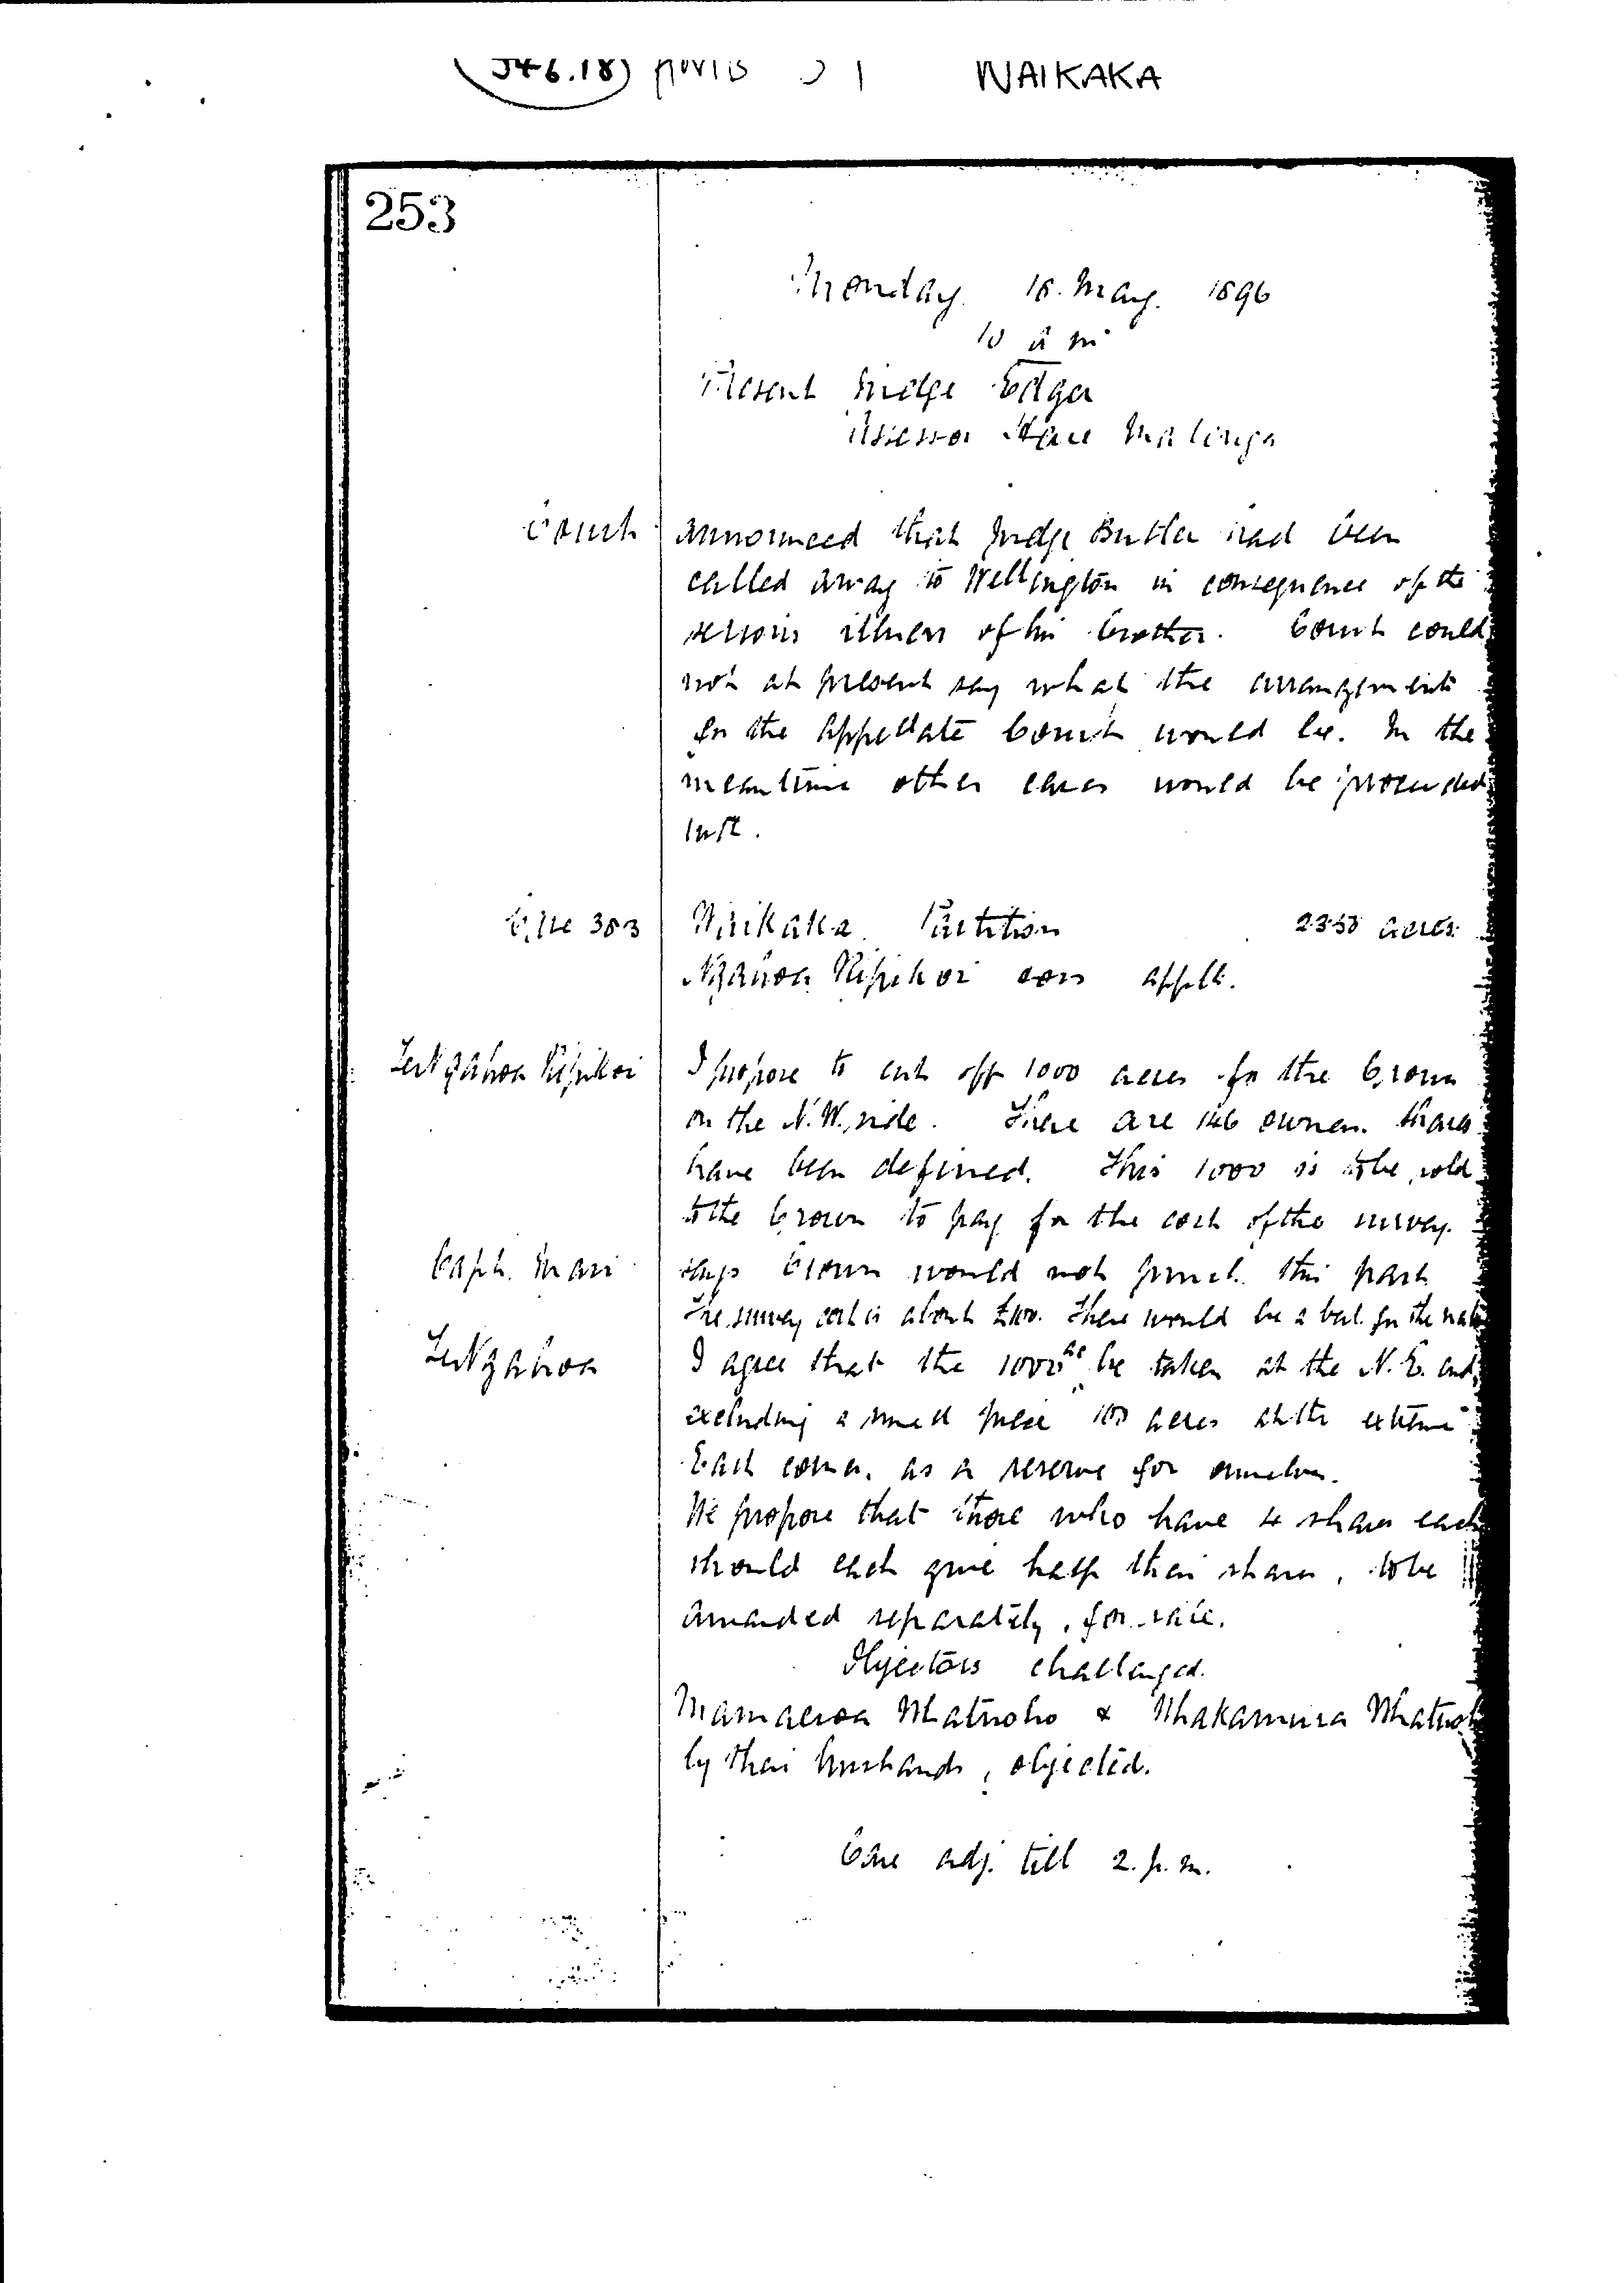 (J46.18) WAIKAKA
253
Monday. 18. May. 1896
10 a m
Present Judge Edger
Assessor Hare Matenga
Court announced that Judge Butler had been
called away to Wellington in consequence of the
serious illness of his brother. Court could
not at present say what the arrangements
for the Appellate Court would be. In the
meantime other cases would be proceeded
with.
Case 383 Waikaka Partition 2350 acres
Ngahoa Ripikoi cons applt.
Te Ngahoa Ripikoi I propose to cut off 1000 acres for the Crown
on the N.W. side. There are 146 owners. Shares
have been defined. This 1000 is to be sold
to the Crown to pay for the cost of the survey.
Capt. Mair says Crown would not purch. this part
The survey cost is about There would be a bal. for the
Te Ngahoa I agree that the 1000 ac be taken at the N. E. end,
excluding a small piece 100 acres at the extreme
East corner, as a reserve for ourselves.
We propose that those who have 4 shares each
should each give half their shares, to be
awarded separately, for sale.
Objectors challenged.
Mamaeroa Whatuoho & Whakamura
by their husbands, objected.
Case adj. till 2. p. m.